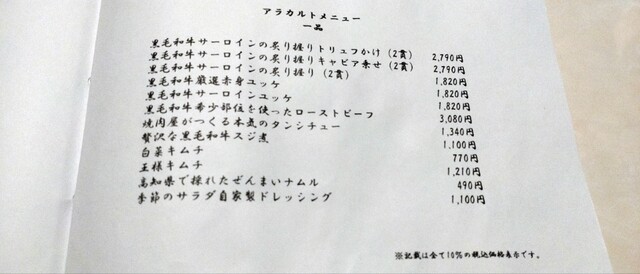 アラカルトメニュー
一品
黒毛和牛サーロインの炙り握りトリュフかけ（2貫） 2,790円
黒毛和牛サーロインの炙り握りキャビア乗せ（2貫） 2,790円
黒毛和牛サーロインの炙り握り（2貫） 1,820円
黒毛和牛厳選赤身ユッケ 1,820円
黒毛和牛サーロインユッケ 1,820円
黒毛和牛希少部位を使ったローストビーフ 3,080円
焼肉屋がつくる本気のタンシチュー 1,340円
贅沢な黒毛和牛スジ煮 1,100円
白菜キムチ 770円
王様キムチ 1,210円
高知県で採れたぜんまいナムル 490円
季節のサラダ自家製ドレッシング 1,100円
※記載は全て10%の税込価格表示です。